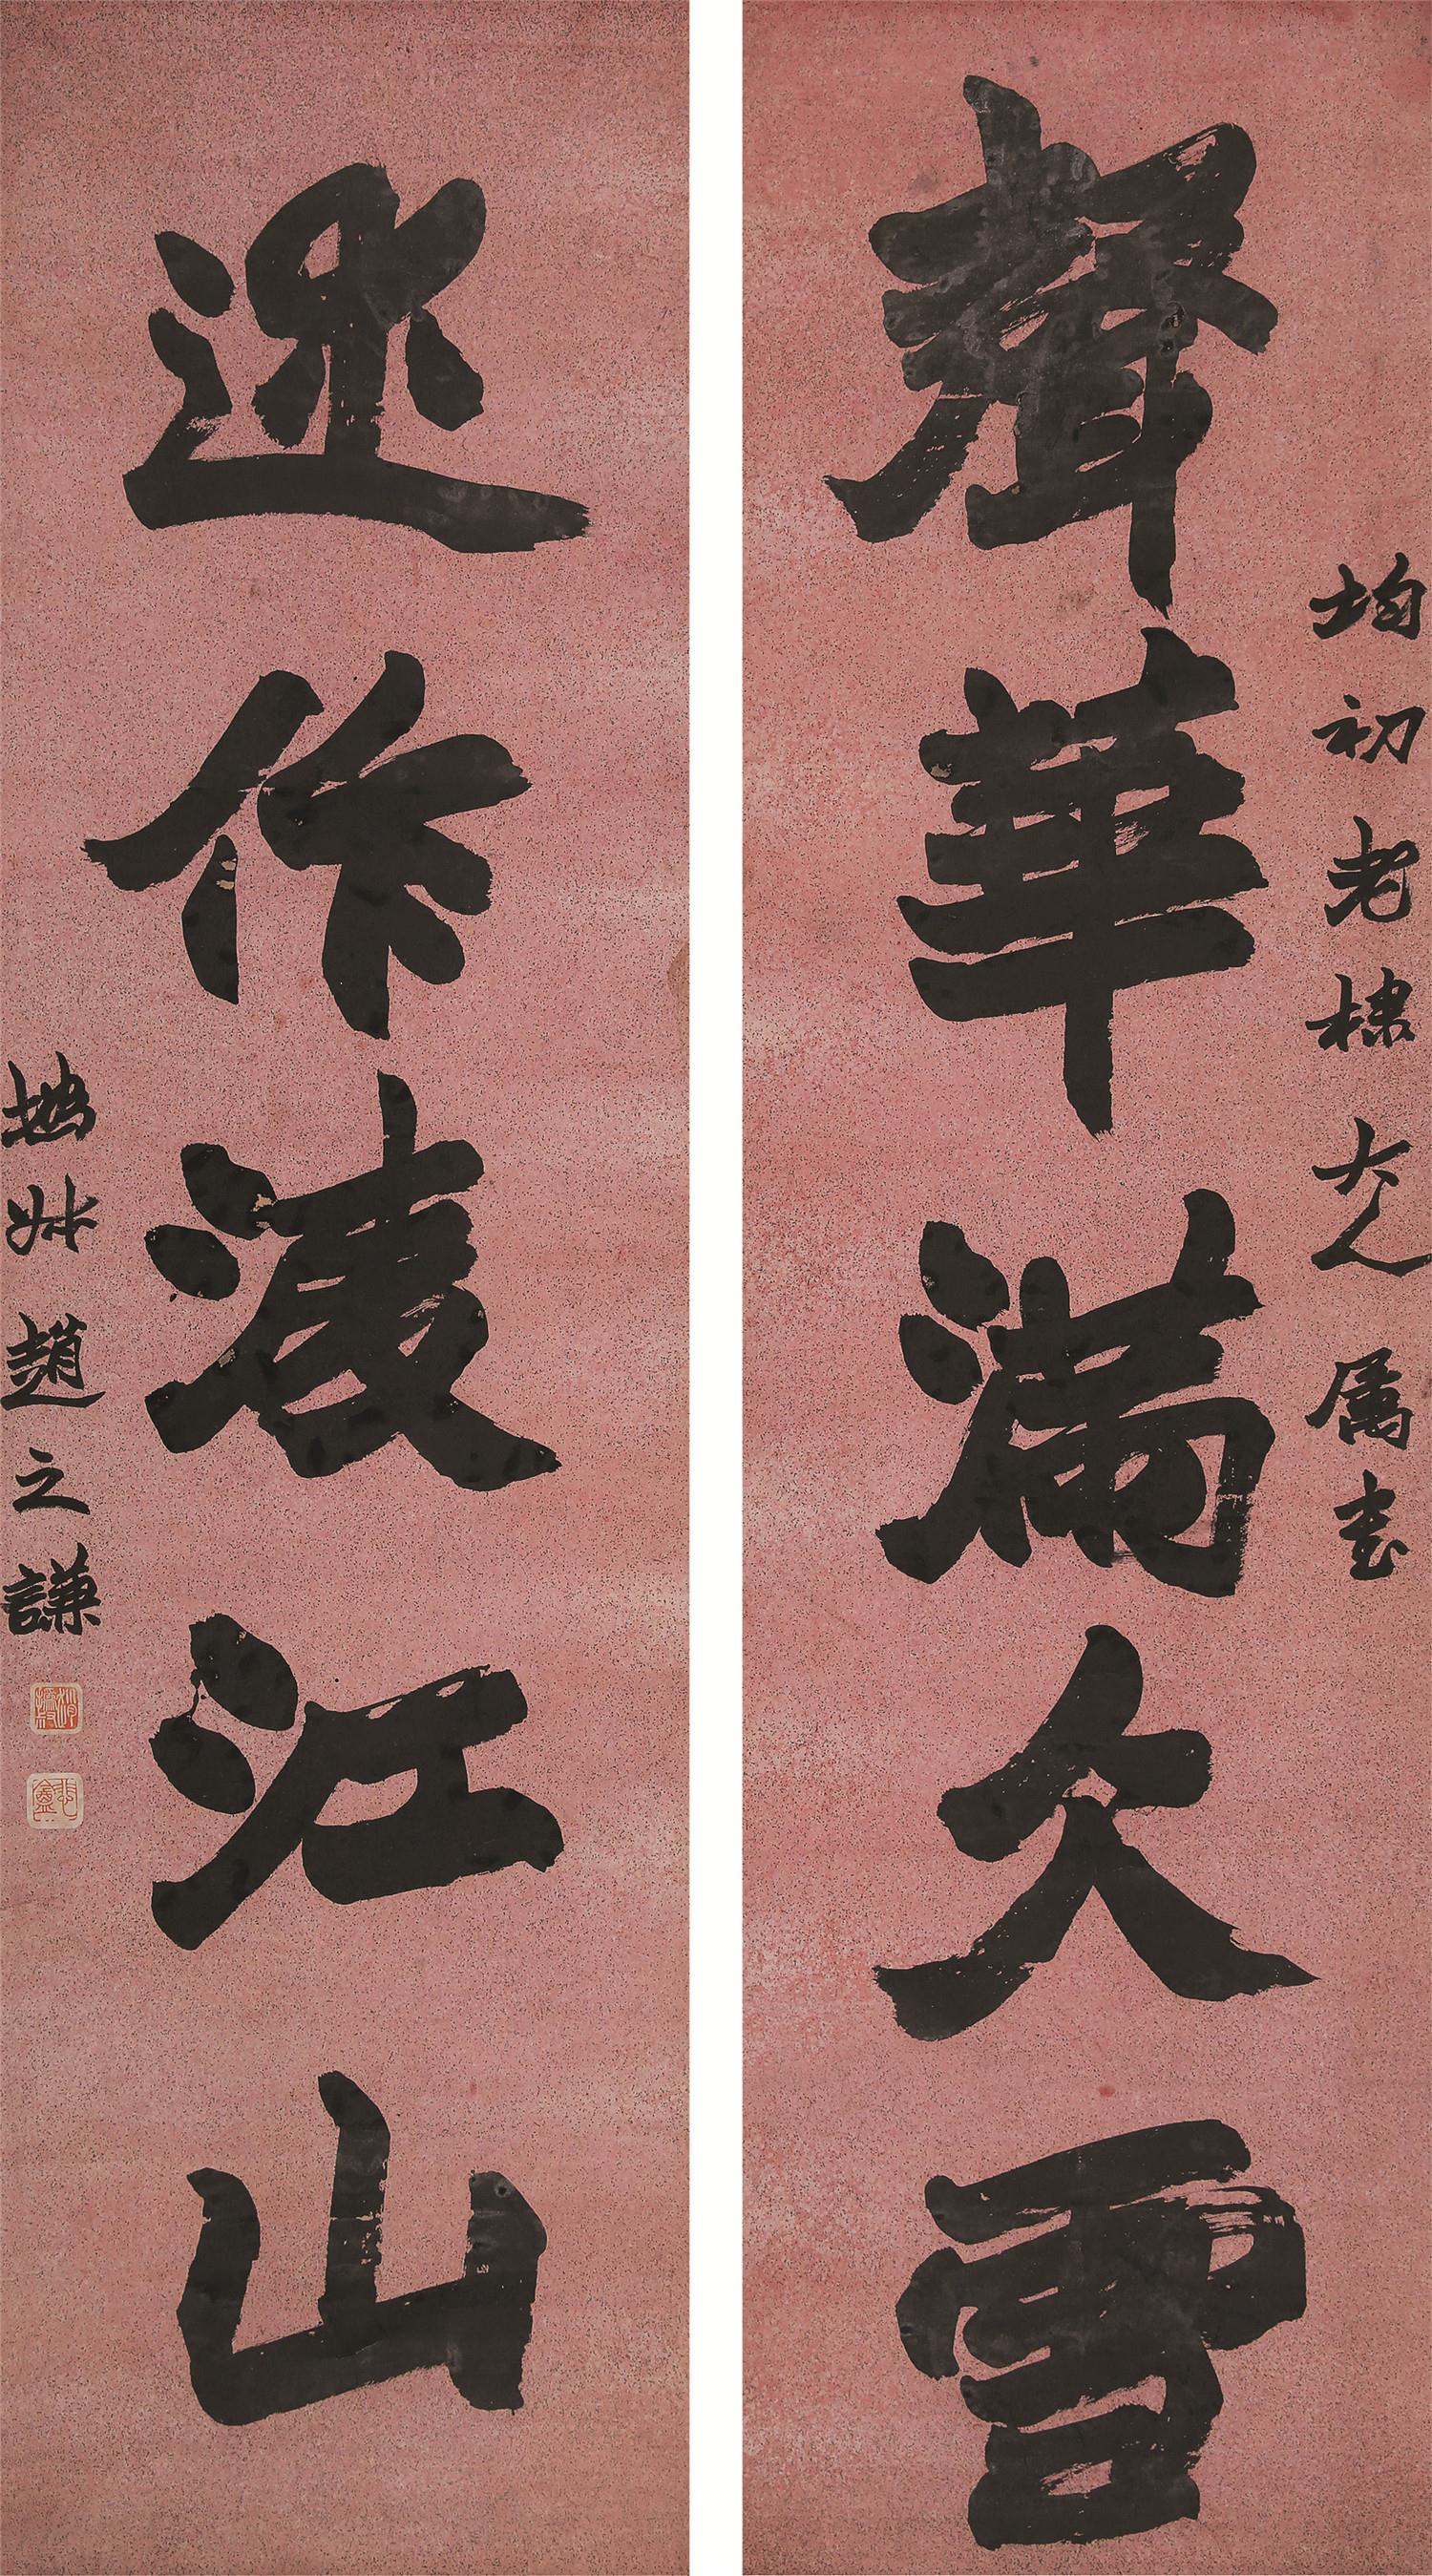 均初老棣大人属書
聲華滿久雪
述作淩江山
撝叔趙之謙
悲盦